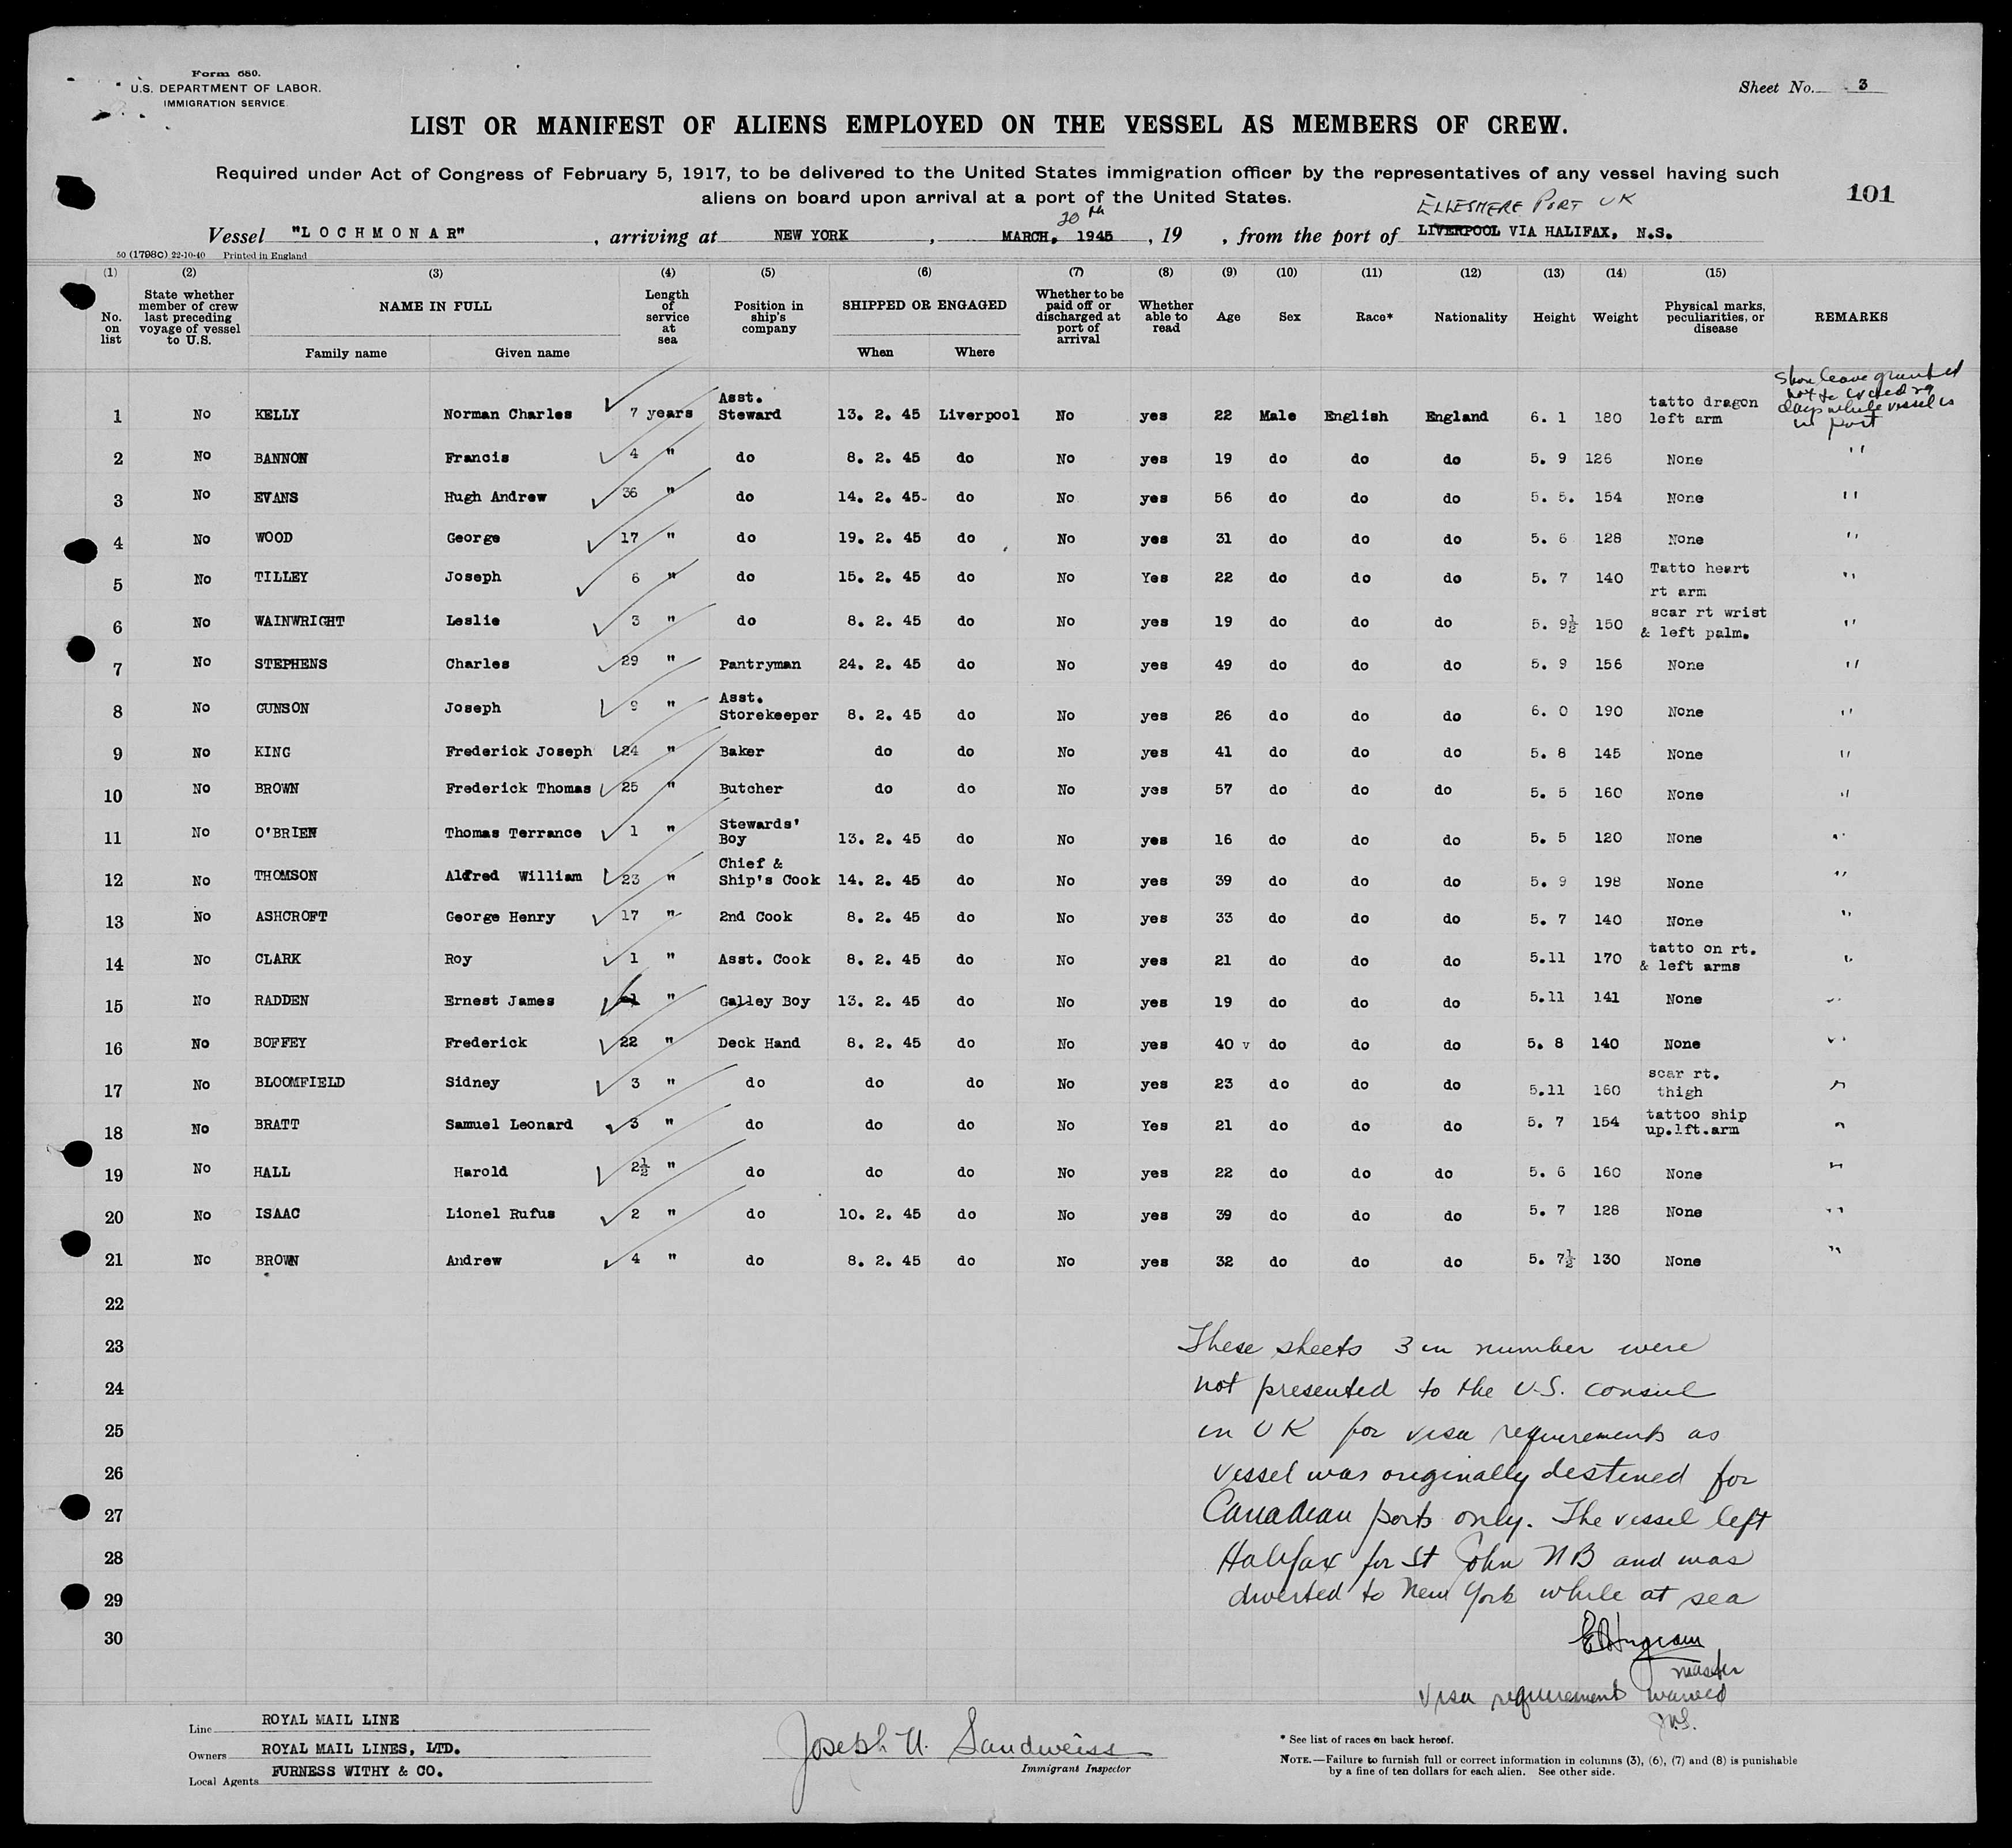 Form 680.
U.S. DEPARTMENT OF LABOR.
IMMIGRATION SERVICE
Sheet No. 3
LIST OR MANIFEST OF ALIENS EMPLOYED ON THE VESSEL AS MEMBERS OF CREW.
Required under Act of Congress of February 5, 1917, to be delivered to the United States immigration officer by the representatives of any vessel having such
aliens on board upon arrival at a port of the United States.
101
20th ELLESMERE PORT UK
Vessel "LOCHMONAR", arriving at NEW YORK, MARCH, 1945, 19 , from the port of LIVERPOOL VIA HALIFAX, N.S.
50 (1798C) 22-10-40 Printed in England
(1) (2) (3) (4) (5) (6) (7) (8) (9) (10) (11) (12) (13) (14) (15)
No. on list State whether member of crew last preceding voyage of vessel to U.S. NAME IN FULL Length of service at sea Position in ship's company SHIPPED OR ENGAGED Whether to be paid off or discharged at port of arrival Whether able to read Age Sex Race* Nationality Height Weight Physical marks, peculiarities, or disease REMARKS
Family name Given name When Where
1 No KELLY Norman Charles 7 years Asst. Steward 13. 2. 45 Liverpool No yes 22 Male English England 6. 1 180 tatto dragon left arm Shore leave granted not to exceed 29 days while vessel is in port
2 No BANNON Francis 4 " do 8. 2. 45 do No yes 19 do do do 5. 9 126 None "
3 No EVANS Hugh Andrew 36 " do 14. 2. 45- do No yes 56 do do do 5. 5. 154 None "
4 No WOOD George 17 " do 19. 2. 45 do No yes 31 do do do 5. 6 128 None "
5 No TILLEY Joseph 6 " do 15. 2. 45 do No Yes 22 do do do 5. 7 140 Tatto heart rt arm "
6 No WAINWRIGHT Leslie 3 " do 8. 2. 45 do No yes 19 do do do 5. 9½ 150 scar rt wrist & left palm. "
7 No STEPHENS Charles 29 " Pantryman 24. 2. 45 do No yes 49 do do do 5. 9 156 None "
8 No GUNSON Joseph 9 " Asst. Storekeeper 8. 2. 45 do No yes 26 do do do 6. 0 190 None "
9 No KING Frederick Joseph 24 " Baker do do No yes 41 do do do 5. 8 145 None "
10 No BROWN Frederick Thomas 25 " Butcher do do No yes 57 do do do 5. 5 160 None "
11 No O'BRIEN Thomas Terrance 1 " Stewards' Boy 13. 2. 45 do No yes 16 do do do 5. 5 120 None "
12 No THOMSON Alfred William 23 " Chief & Ship's Cook 14. 2. 45 do No yes 39 do do do 5. 9 198 None "
13 No ASHCROFT George Henry 17 " 2nd Cook 8. 2. 45 do No yes 33 do do do 5. 7 140 None "
14 No CLARK Roy 1 " Asst. Cook 8. 2. 45 do No yes 21 do do do 5.11 170 tatto on rt. & left arms "
15 No RADDEN Ernest James " Galley Boy 13. 2. 45 do No yes 19 do do do 5.11 141 None "
16 No BOFFEY Frederick 22 " Deck Hand 8. 2. 45 do No yes 40 v do do do 5. 8 140 None "
17 No BLOOMFIELD Sidney 3 " do do do No yes 23 do do do 5.11 160 scar rt. thigh "
18 No BRATT Samuel Leonard 3 " do do do No Yes 21 do do do 5. 7 154 tattoo ship up.lft.arm "
19 No HALL Harold 2½ " do do do No yes 22 do do do 5. 6 160 None "
20 No ISAAC Lionel Rufus 2 " do 10. 2. 45 do No yes 39 do do do 5. 7 128 None "
21 No BROWN Andrew 4 " do 8. 2. 45 do No yes 32 do do do 5. 7½ 130 None "
22
23 These sheets 3 in number were
24 not presented to the U.S. consul
25 in UK for visa requirements as
26 vessel was originally destined for
27 Canadian ports only. The vessel left
28 Halifax for St John NB and was
29 diverted to New York while at sea
30
master
Visa requirement waived
Line ROYAL MAIL LINE
Owners ROYAL MAIL LINES, LTD.
Local Agents FURNESS WITHY & CO.
Joseph U. Sandweiss
Immigrant Inspector
* See list of races on back hereof.
NOTE.—Failure to furnish full or correct information in columns (3), (6), (7) and (8) is punishable
by a fine of ten dollars for each alien. See other side.